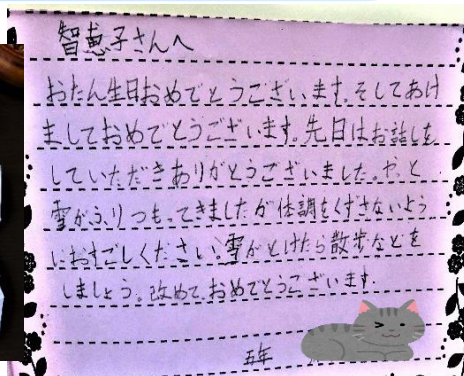 智恵子さんへ
おたん生日おめでとうございます。そしてあけ
ましておめでとうございます。先日はお話しを
していただきありがとうございました。やっと
雪がふりつもってきましたが体調をくずさないよう
におすごしください。雪がとけたら散歩などを
しましょう。改めて、おめでとうございます。
五年